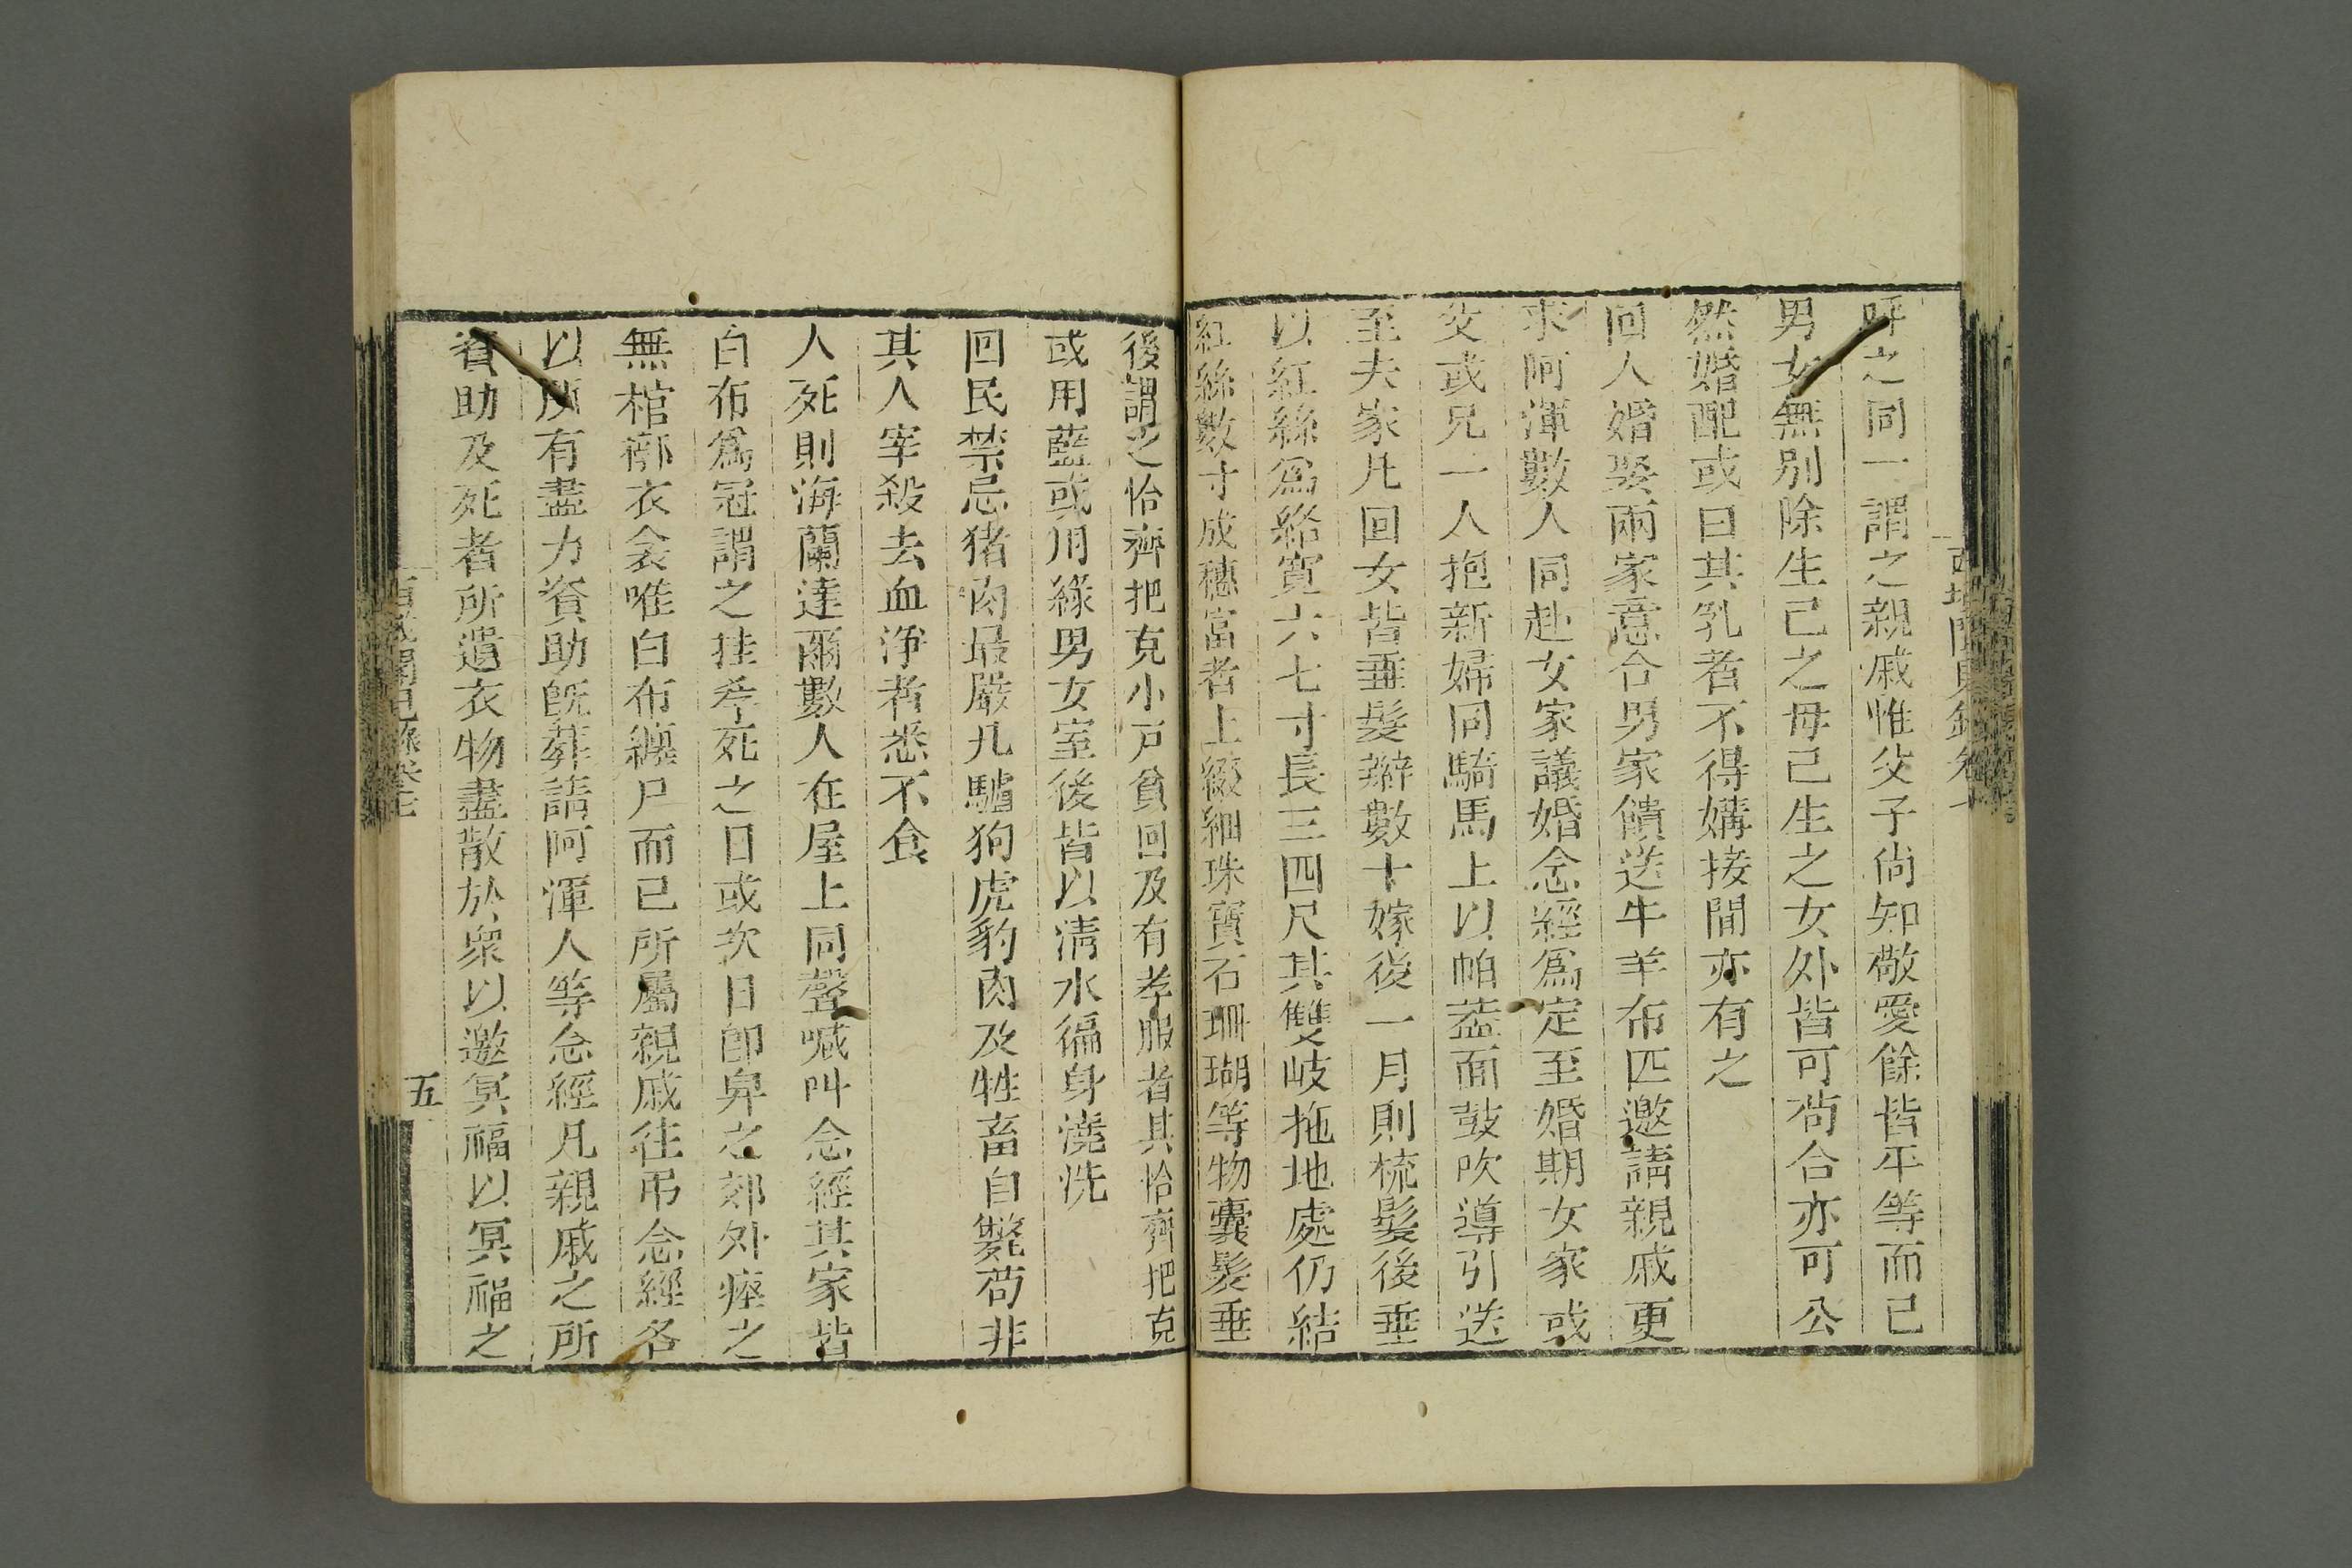 呼之同一謂之親戚惟父子尙知敬愛餘皆平等而已
男女無别除生己之母己生之女外皆可茍合亦可公
然婚配或曰其乳者不得媾接間亦有之
回人婚娶兩家意合男家饋送牛羊布匹邀請親戚更
求阿渾數人同赴女家議婚念經爲定至婚期女家或
父或兄一人抱新婦同騎馬上以帕葢面鼓吹導引送
至夫家凡回女皆垂髮辮數十嫁後一月則梳髮後垂
以紅絲爲綹寛六七寸長三四尺其雙岐拖地處仍結
紅絲數寸成穗富者上綴細珠寳石珊瑚等物囊髮垂
後謂之恰齊把克小戸貧回及有孝服者其恰齊把克
或用藍或用綠男女室後皆以淸水徧身澆洗
回民禁忌猪肉最嚴凡驢狗虎豹肉及牲畜自斃茍非
其人宰殺去血淨者悉不食
人死則海蘭達爾數人在屋上同聲喊叫念經其家皆
白布爲冠謂之挂孝死之日或次日卽舁之郊外瘞之
無棺槨衣衾唯白布纏尸而已所屬親戚往吊念經各
以所有盡力資助旣葬請阿渾人等念經凡親戚之所
資助及死者所遺衣物盡散於衆以邀冥福以冥福之
五